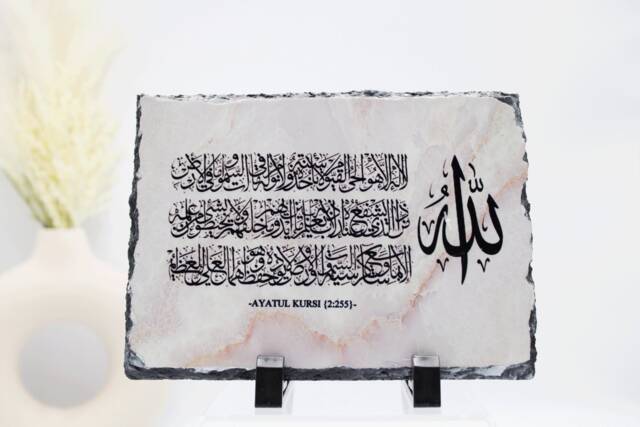 الله
لا إله إلا هو الحي القيوم لا تأخذه سنة ولا نوم له ما في السموات وما في الأرض
من ذا الذي يشفع عنده إلا بإذنه يعلم ما بين أيديهم وما خلفهم ولا يحيطون بشيء من علمه
إلا بما شاء وسع كرسيه السموات والأرض ولا يؤوده حفظهما وهو العلي العظيم
-AYATUL KURSI {2:255}-